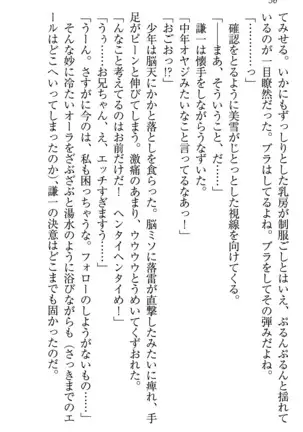 50
てみせる。いかにもずっしりとした乳房が制服ごしとはいえ、ぶるんぶるんと揺れて
いるのが一目瞭然だった。ブラはしてるよね。ブラをしててその弾みだよね。
「………っ」
確認をとるように美雪がじとっとした視線を向けてくる。
「――まあ、そういうこと、だ……」
謙一は懐手をしながらうなずいた。
「中年オヤジみたいなこと言ってるなあっ！」
「おごおっ!?」
少年は脳天にかかと落としを食らった。脳ミソに落雷が直撃したみたいに痺れ、手
足がビーンと伸びてしまう。激痛のあまり、ウウウウとうめいてくずおれた。
「んなこと考えてるのはお前だけだ！　ヘンタイヘンタイめ！」
「うぅ……お兄ちゃん、え、エッチすぎますう……」
「うーん。さすがに今のは、私も困っちゃうな。フォローのしようがないもの……」
そんな妙に冷たいオーラをざぶざぶと湯水のように浴びながらも（さっきまでのエ
ールはどこへいってしまったのか）謙一の決意はどこまでも固かったのだ。